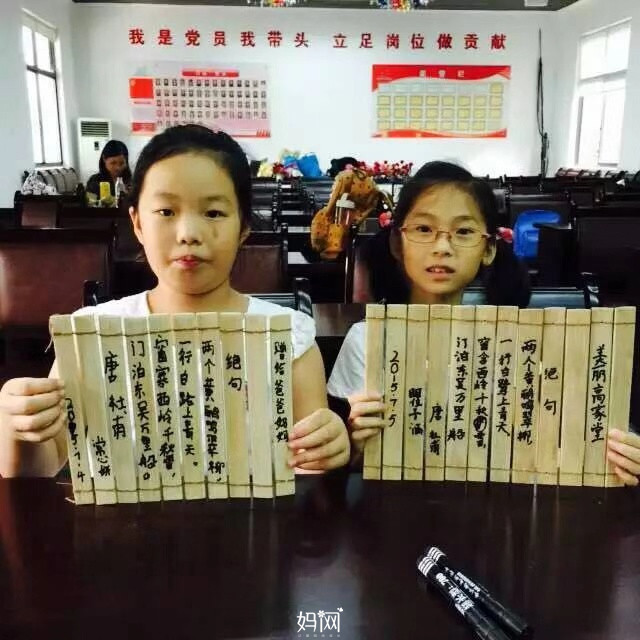 我是党员我带头 立足岗位做贡献
赠给爸爸妈妈
绝句
两个黄鹂鸣翠柳,
一行白路上青天。
窗寒西岭千秋雪,
门泊东吴万里船。
唐 杜甫
2015.7.4
美丽高家堂
绝句
两个黄鹂鸣翠柳
一行白路上青天
窗含西岭千秋雪
门泊东吴万里船
唐 杜甫
2015.7.5
妈网